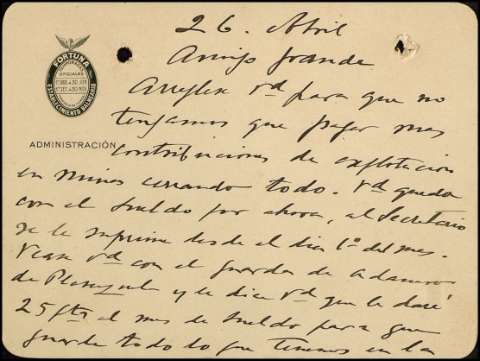 FORTUNA
ESTABLECIMIENTO BALNEARIO
ADMINISTRACIÓN
26. Abril
Amigo Grande
Arreglese Vd para que no
tengamos que pagar mas
contribuciones de explotacion
en minas cerrando todo. Vd queda
con el sueldo por ahora, al Secretario
se le suprime desde el dia 1º del mes.
Vease Vd con el guarda de
de y le dice Vd que le daré
25 pts al mes de sueldo para que
guarde todo lo que tenemos en la